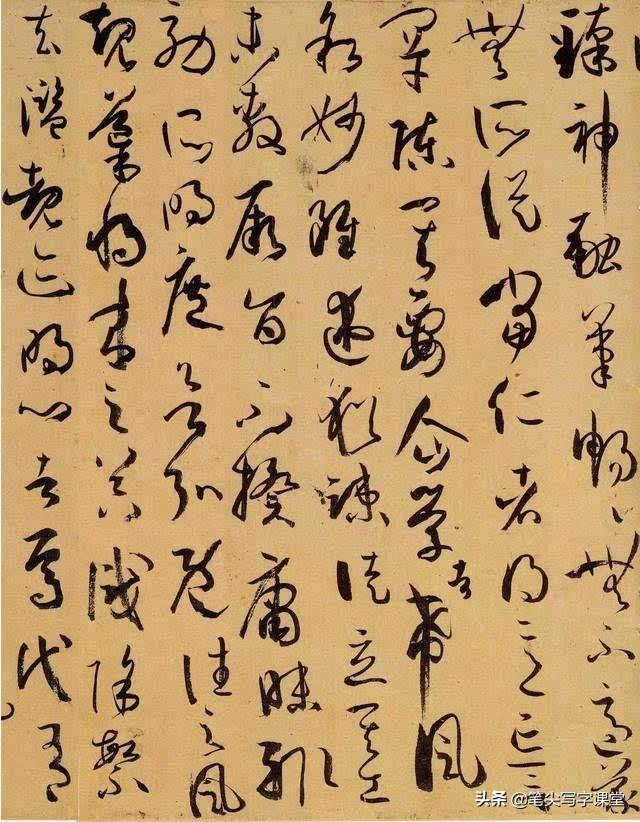 臻神融筆暢〻無不適蒙
無所從當仁者得意忘言
罕陳其要企學者希風
叙妙雖述猶疎徒立其工
未敷厥旨不揆庸昧輒
効所明庶欲弘既往之風
規導將来之器識除繁
去濫覩迹明心者焉代有
头条 @笔尖写字课堂